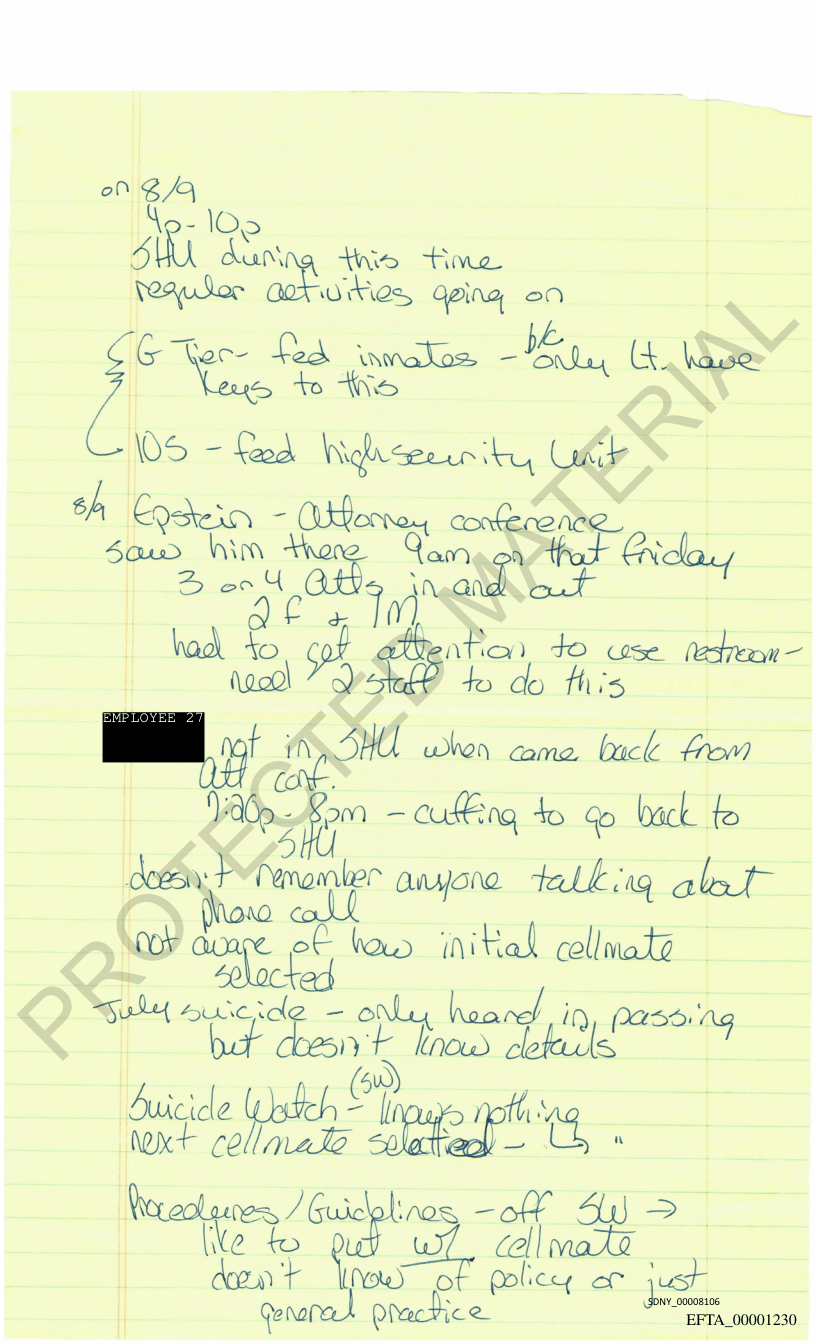 on 8/9
4p-10p
SHU during this time
regular activities going on
G Tier- fed inmates - b/c only Lt. have
keys to this
10S - feed high security Unit
8/9 Epstein - Attorney conference
saw him there 9am on that friday
3 or 4 Attys in and out
2 f + 1M
had to get attention to use restroom-
need 2 staff to do this
EMPLOYEE 27
not in SHU when came back from
Att conf.
7:20p - 8pm - cuffing to go back to
SHU
doesn't remember anyone talking about
phone call
not aware of how initial cellmate
selected
July suicide - only heard in passing
but doesn't know details
Suicide Watch (SW) - knows nothing
next cellmate selected - ↳ "
Procedures/Guidelines - off SW →
like to put w/ cellmate
doesn't know of policy or just
general practice
SDNY_00008106
EFTA_00001230
PROTECTED MATERIAL